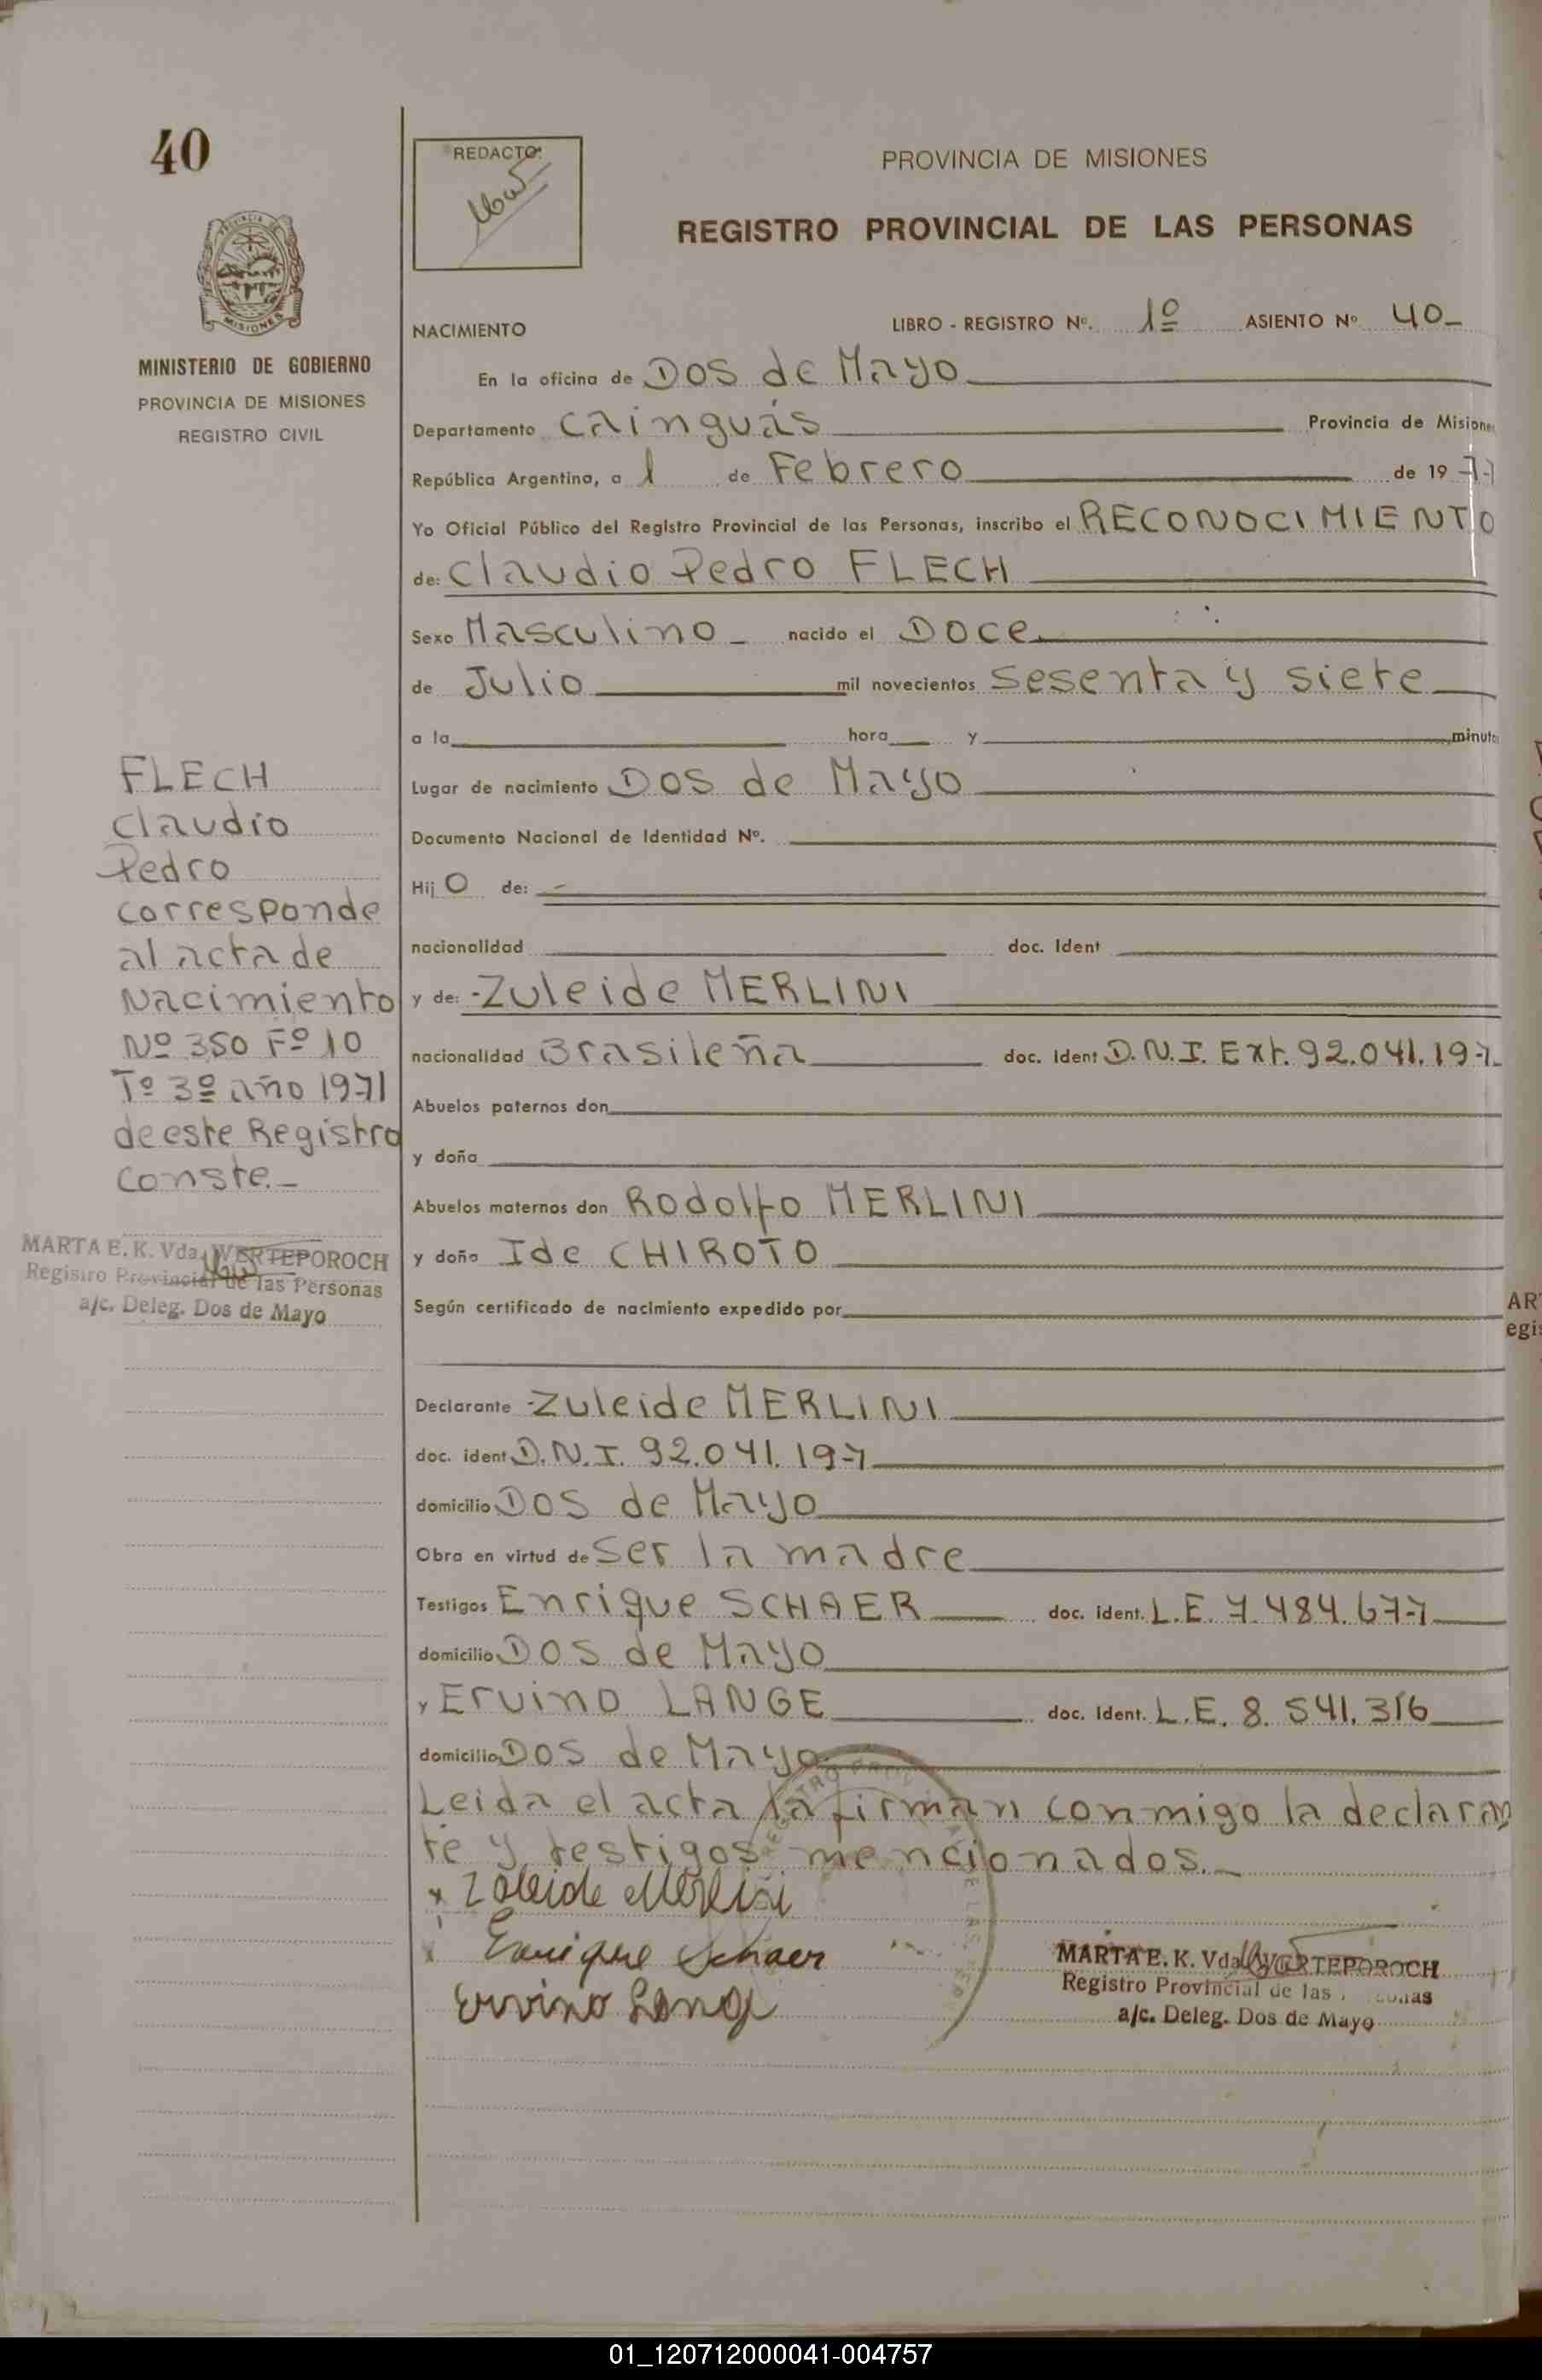 40
REDACTO:
PROVINCIA DE MISIONES
REGISTRO PROVINCIAL DE LAS PERSONAS
MISIONES
MINISTERIO DE GOBIERNO
PROVINCIA DE MISIONES
REGISTRO CIVIL
NACIMIENTO LIBRO - REGISTRO Nº. 1º ASIENTO Nº 40_
En la oficina de Dos de Mayo
Departamento Cainguás Provincia de Misiones
República Argentina, a 1 de Febrero de 1977
Yo Oficial Público del Registro Provincial de las Personas, inscribo el RECONOCIMIENTO
de: Claudio Pedro FLECH
Sexo Masculino _ nacido el Doce
de Julio mil novecientos sesenta y siete
a la hora y minutos
Lugar de nacimiento Dos de Mayo
Documento Nacional de Identidad Nº.
Hij O de: -
nacionalidad doc. Ident
y de: -Zuleide MERLINI
nacionalidad Brasileña doc. Ident D.N.I. Ext. 92.041.197
Abuelos paternos don
y doña
Abuelos maternos don Rodolfo MERLINI
y doña Ide CHIROTO
Según certificado de nacimiento expedido por
Declarante -Zuleide MERLINI
doc. ident D.N.I. 92.041.197
domicilio Dos de Mayo
Obra en virtud de Ser la madre
Testigos Enrique SCHAER doc. ident. L.E. 7.484.677
domicilio Dos de Mayo
y Ervino LANGE doc. Ident. L.E. 8.541.316
domicilio Dos de Mayo
Leida el acta la firman conmigo la declaran
te y testigos mencionados._
x Zuleide Merlini
x Enrique Schaer
Ervino Lange
MARTA E. K. Vda. WERTEPOROCH
Registro Provincial de las
a/c. Deleg. Dos de Mayo
FLECH
Claudio
Pedro
corresponde
al acta de
Nacimiento
Nº 350 Fº 10
Tº 3º año 1971
de este Registro
conste._
MARTA E. K. Vda. WERTEPOROCH
Registro Provincial de las Personas
a/c. Deleg. Dos de Mayo
01_120712000041-004757